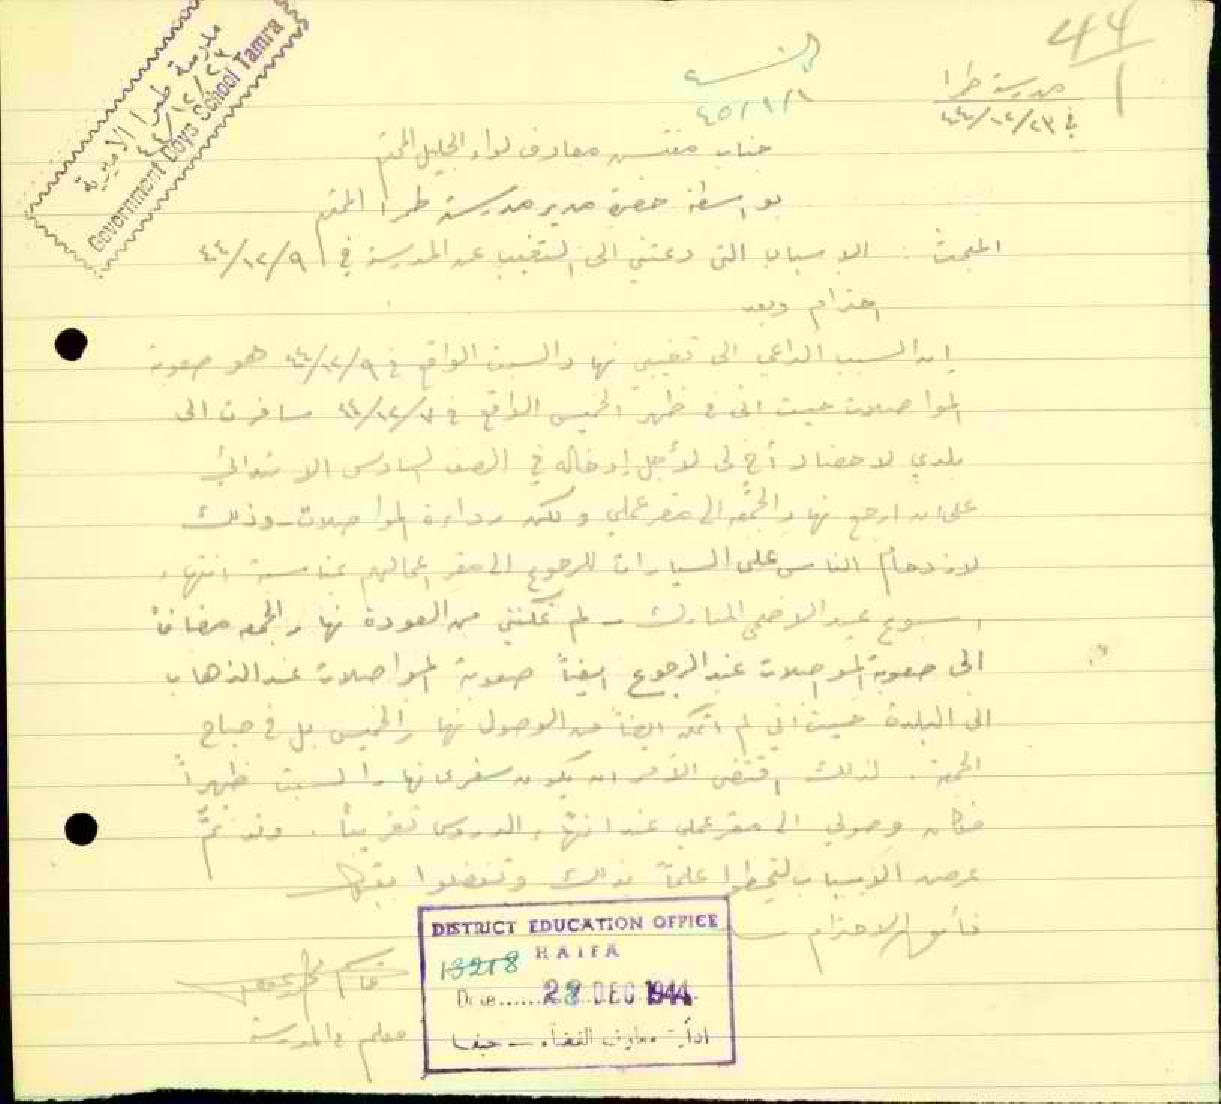 44
1
مدرسة طمرا الاميرية
٤٤/١٢/٢٣
Government Boys School Tamra
٤٥/١/١
مدرسة طمرا
في ٤٤/١٢/٢٣
جناب مفتش معارف لواء الجليل المحترم
بواسطة حضرة مدير مدرسة طمرا المحترم
المبحث : الاسباب التي دعتني الى التغيب عن المدرسة في ٤٤/١٢/٩
احترام وبعد
ان السبب الداعي الى تغيبي نهار السبت الواقع في ٤٤/١٢/٩ هو صعوبة
المواصلات حيث اني في ظهر الخميس الواقع في ٤٤/١٢/٧ سافرت الى
بلدي لاحضار أخ لي لأجل إدخاله في الصف السادس الابتدائي
على ان ارجع نهار الجمعة الى مقر عملي ولكن رداءة المواصلات - وذلك
لازدحام الناس على السيارات للرجوع الى مقر اعمالهم بمناسبة انتهاء
اسبوع عيد الاضحى المبارك - لم تمكنني من العودة نهار الجمعة مضافاً
الى صعوبة المواصلات عند الرجوع ايضاً صعوبة المواصلات عند الذهاب
الى البلدة حيث اني لم اتمكن ايضاً من الوصول نهار الخميس بل في صباح
الجمعة . لذلك اقتضى الأمر ان يكون سفري نهار السبت ظهراً
فكان وصولي الى مقر عملي عند انتهاء الدروس تقريباً . وقد تم
عرض الاسباب لتحيطوا علماً بذلك وتفضلوا بقبول
فائق الاحترام
معلم في المدرسة
DISTRICT EDUCATION OFFICE
HAIFA
13218
Date...... 28 DEC 1944
ادارة معارف القضاء - حيفا